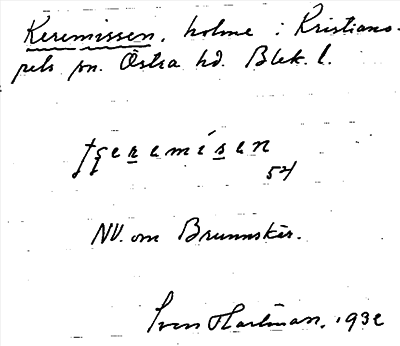 Keremissen, holme i Kristiano-
pels sn. Östra hd. Blek. l.
tʃeremisen
54
NV. om Brunnskär.
Sven Hartman, 1932